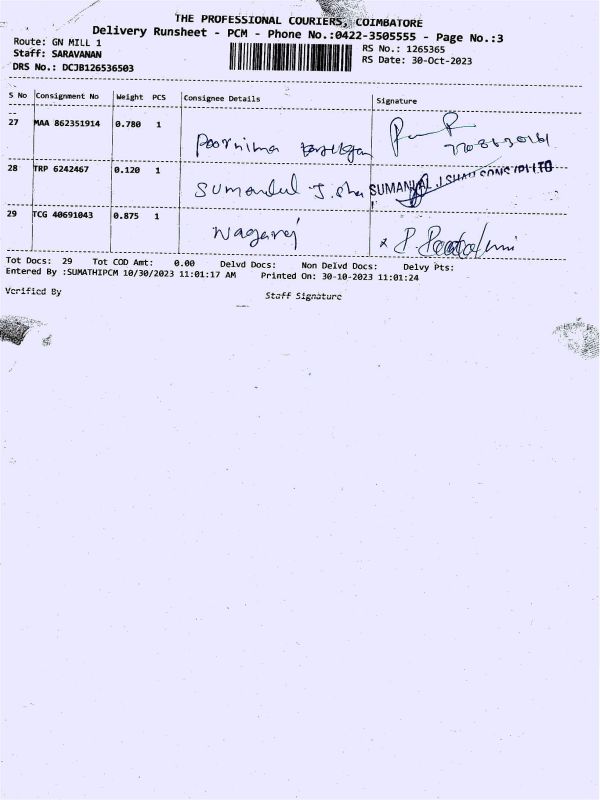 THE PROFESSIONAL COURIERS, COIMBATORE
Delivery Runsheet - PCM - Phone No.:0422-3505555 - Page No.:3
Route: GN MILL 1
RS No.: 1265365
Staff: SARAVANAN
RS Date: 30-Oct-2023
DRS No.: DCJB126536503
S No Consignment No Weight PCS Consignee Details Signature
27 MAA 862351914 0.780 1
Poornima
28 TRP 6242467 0.120 1
Sumanlal J. Sha SUMANLAL J SHAH SONS (P) LTD
29 TCG 40691043 0.875 1
Nagaraj
Tot Docs: 29 Tot COD Amt: 0.00 Delvd Docs: Non Delvd Docs: Delvy Pts:
Entered By :SUMATHIPCM 10/30/2023 11:01:17 AM Printed On: 30-10-2023 11:01:24
Verified By
Staff Signature